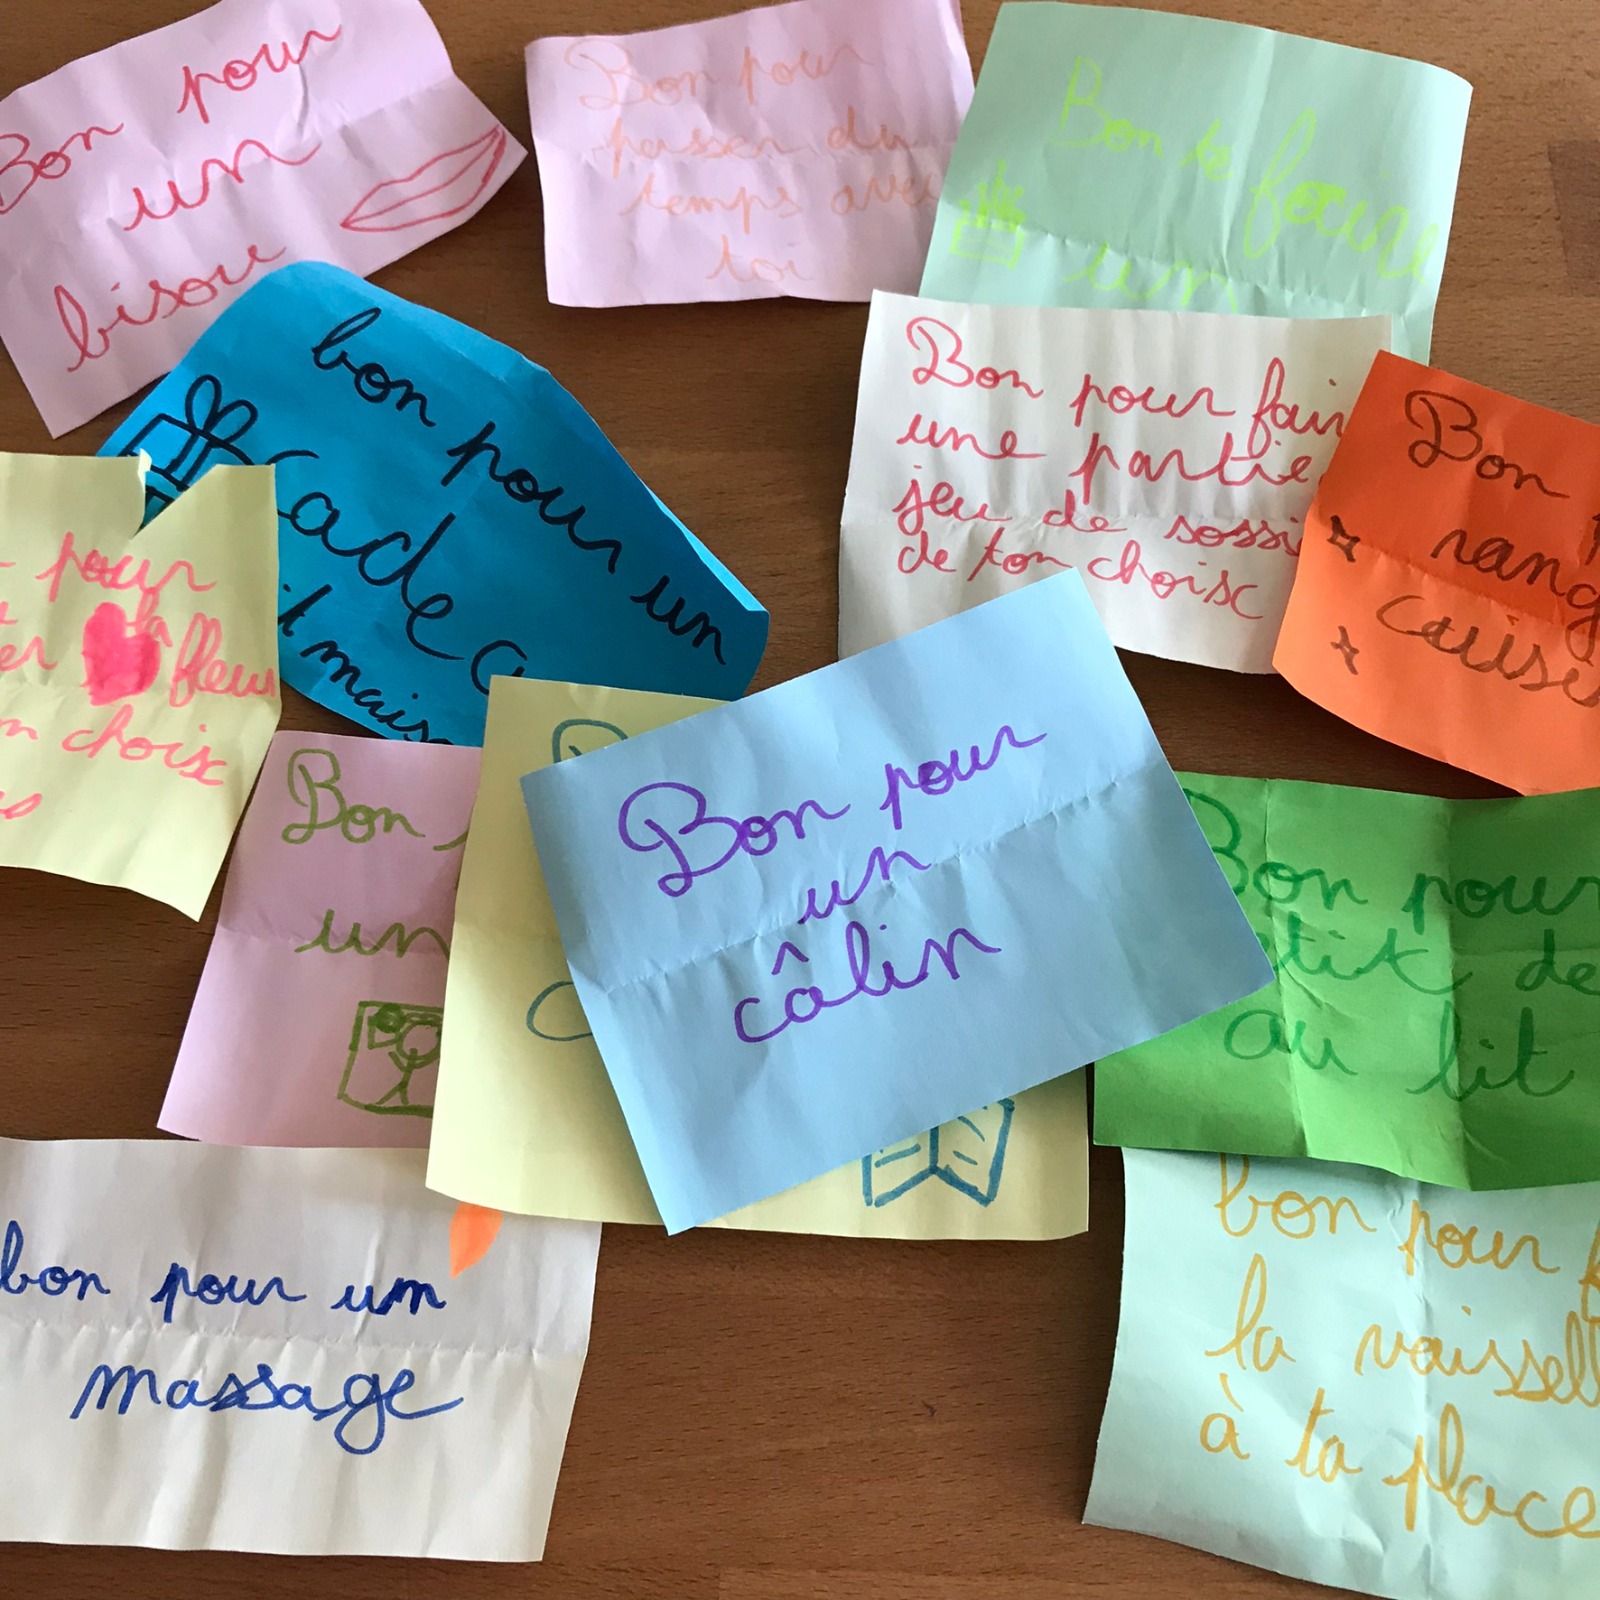 Bon pour
un
bisou
Bon pour
passer du
temps avec
toi
Bon te faire
un
bon pour un
cadea
mais
Bon pour fair
une partie
jeu de sossi
de ton choisc
Bon
rang
cuisi
pour
fleur
choisc
Bon
un
Bon pour
un
câlin
Bon pour
au lit
bon pour un
massage
bon pour
la vaissell
à ta place